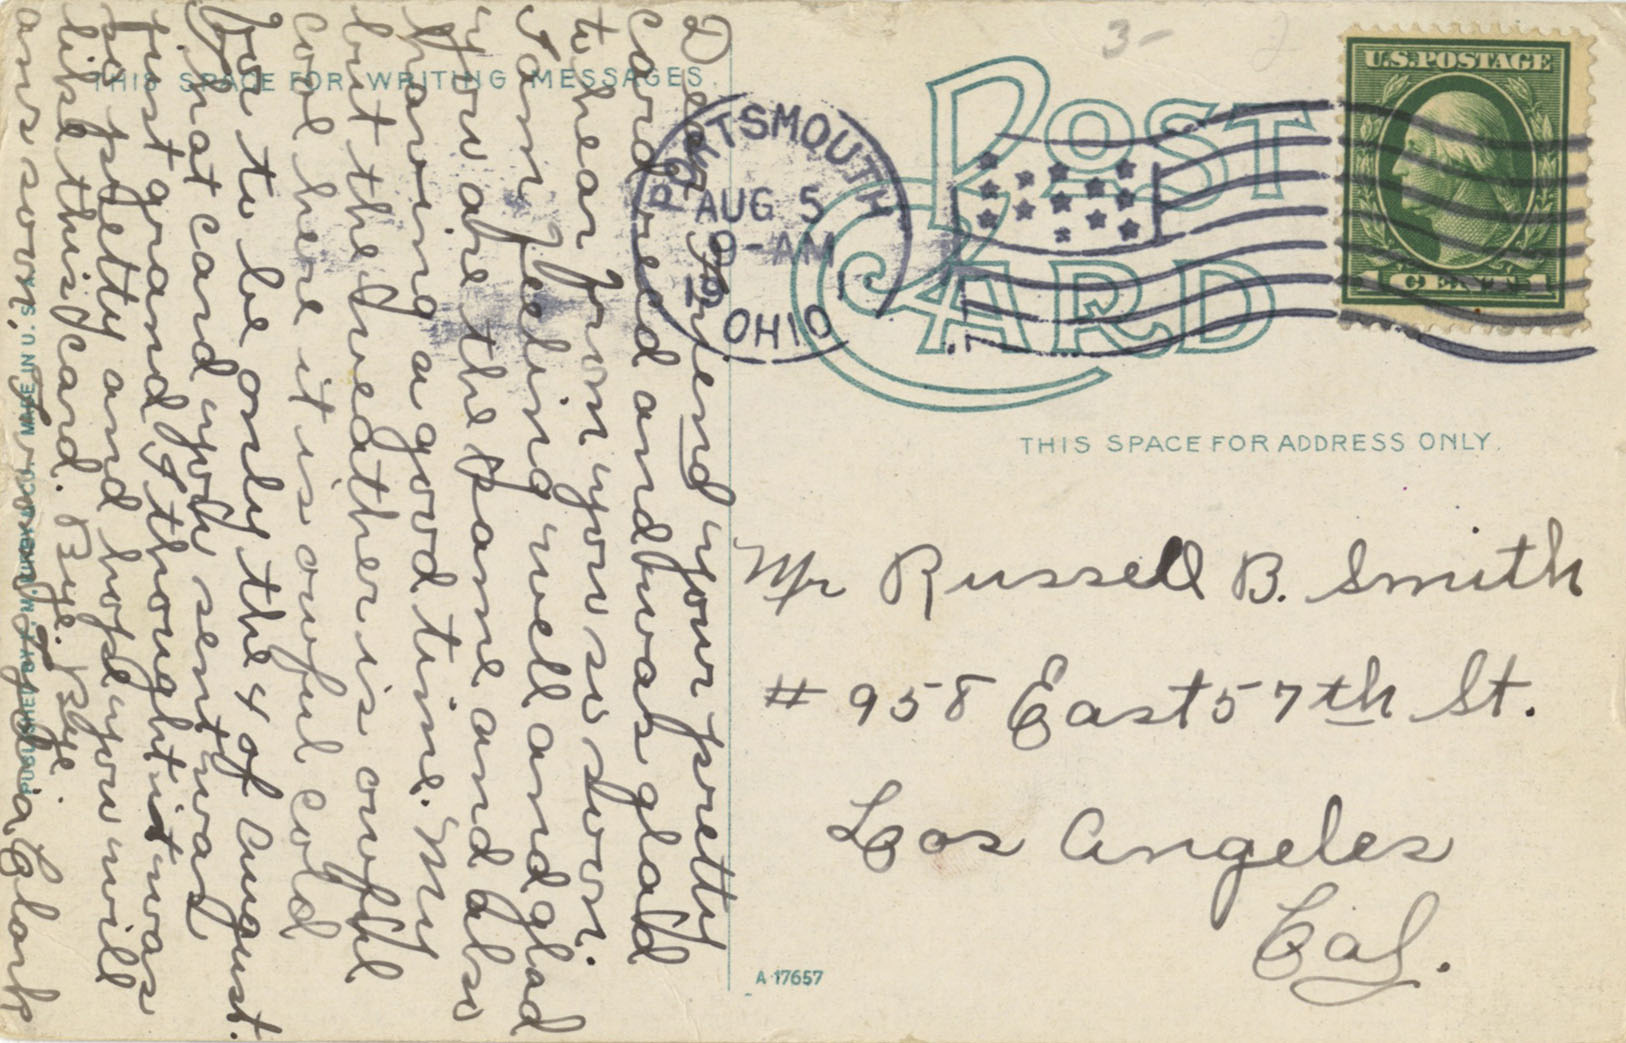 THIS SPACE FOR WRITING MESSAGES.
Dear Friend your pretty
card rec'd and was glad
to hear from you so soon.
I am feeling well and glad
you are the same and also
having a good time. My
but the weather is awful
cool here it is awful cold
for to be only the 4 of August.
That card you sent was
just grand I thought it was
so pretty and hope you will
like this card. Bye. Bye.
ans soon,
Clark
MADE IN U.S.A.
3-
POST
CARD
PORTSMOUTH
AUG 5
9-AM
OHIO
U.S. POSTAGE
1 CENT 1
THIS SPACE FOR ADDRESS ONLY.
Mr Russell B. Smith
# 958 East 57th St.
Los Angeles
Cal.
A-17657